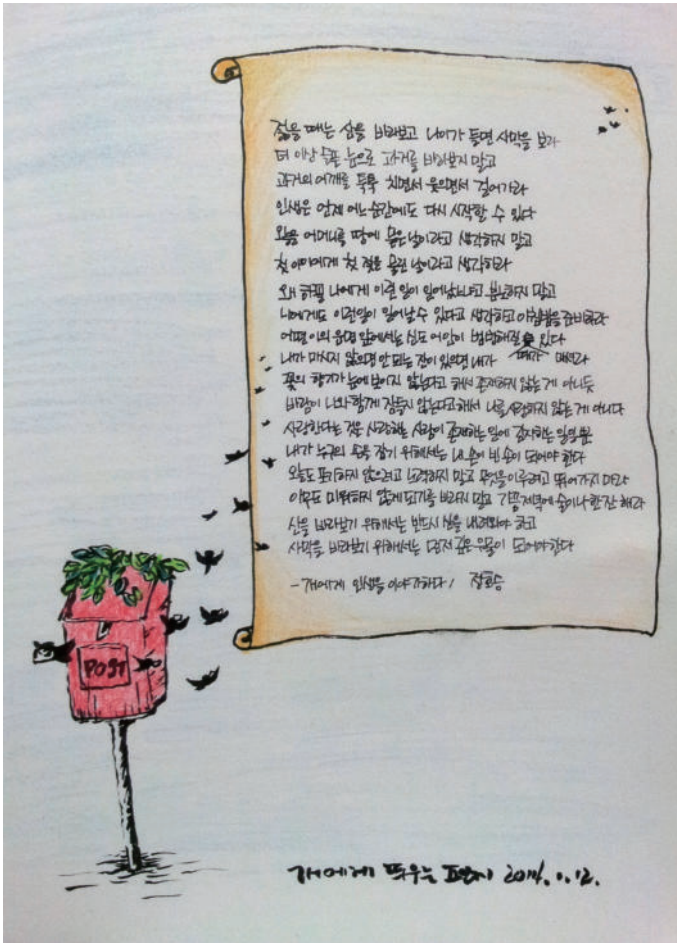 젊을 때는 산을 바라보고 나이가 들면 사막을 보라
더 이상 슬픈 눈으로 과거를 바라보지 말고
과거의 어깨를 툭툭 치면서 웃으면서 걸어가라
인생은 언제 어느 순간에도 다시 시작할 수 있다
오늘을 어머니를 땅에 묻은 날이라고 생각하지 말고
첫 아이에게 첫 젖을 물린 날이라고 생각하라
왜 하필 나에게 이런 일이 일어났느냐고 분노하지 말고
나에게도 이런일이 일어날 수 있다고 생각하고 아침밥을 준비하라
어떤 이의 운명 앞에서는 신도 어안이 벙벙해질 수 있다
내가 마시지 않으면 안 되는 잔이 있으면 내가 마셔라
꽃의 향기가 눈에 보이지 않는다고 해서 존재하지 않는 게 아니듯
바람이 나와 함께 잠들지 않는다고 해서 나를 사랑하지 않는 게 아니다
사랑한다는 것은 사랑하는 사람이 존재하는 일에 감사하는 일일 뿐
내가 누구의 손을 잡기 위해서는 내 손이 빈 손이 되어야 한다
오늘도 포기하지 않으려고 노력하지 말고 무엇을 이루려고 뛰어가지 마라
아무도 미워하지 않게 되기를 바라지 말고 가끔 저녁에 술이나 한 잔 해라
산을 바라보기 위해서는 반드시 산을 내려와야 하고
사막을 바라보기 위해서는 먼저 깊은 우물이 되어야 한다
- 개에게 인생을 이야기하다 / 정호승
POST
개에게 띄우는 편지 2014. 1. 12.